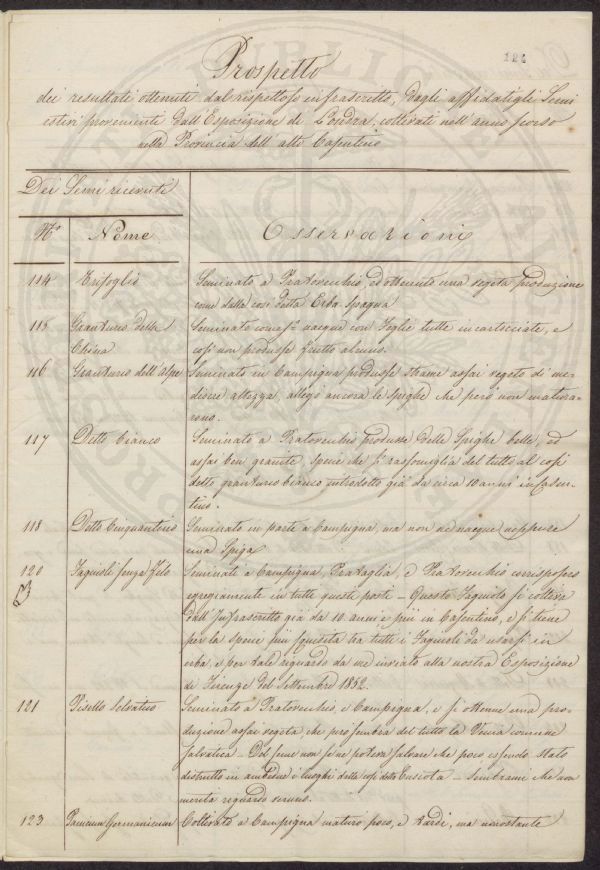 124
Prospetto
dei resultati ottenuti dal rispettoso infrascritto, dagli affidatigli Semi
esteri provenienti dall'Esposizione di Londra, coltivati nell'anno scorso
nella Provincia dell'alto Casentino
Dei Semi ricevuti
N.° Nome Osservazioni
114 Trifoglio Seminato a Pratovecchio, ed ottenuto una vegeta produzione
come dalla così detta Erba spagna
115 Granturco della Seminato come sopra nacque con foglie tutte incartocciate, e
China così non produsse frutto alcuno.
116 Granturco dell'alpe Seminato in Campigna produsse strame assai vegeto di me-
diocre altezza, allegò ancora le spighe che però non matura-
rono.
117 Detto bianco Seminato a Pratovecchio produsse delle Spighe belle, ed
assai ben granite specie che si rassomiglia del tutto al così
detto granturco bianco introdotto già da circa 10 anni in Casen-
tino.
118 Detto Cinquantino Seminato in parte a Campigna, ma non ne nacque neppure
una Spiga
120 Fagiuoli senza filo Seminati a Campigna, Prataglia, e Pratovecchio corrisposero
egregiamente in tutte queste parti - Questo Fagiuolo si coltiva
dall'Infrascritto già da 10 anni e più in Casentino, e si tiene
per la specie più squisita tra tutti i Fagiuoli da usarsi in
erba, e per tale riguardo da me inviato alla nostra Esposizione
di Firenze del Settembre 1852.
121 Pisello Selvatico Seminato a Pratovecchio, e Campigna, e si ottenne una pro-
duzione assai vegeta, che però sembra del tutto la Vecia comune
salvatica - Del seme non se ne poteva salvare che poco essendo stato
distrutto in ambedue i luoghi dalla così detta - sembrami che non
meriti riguardo veruno.
123 Panicum Germanicum Coltivato a Campigna maturò poco, e tardi, ma nonostante